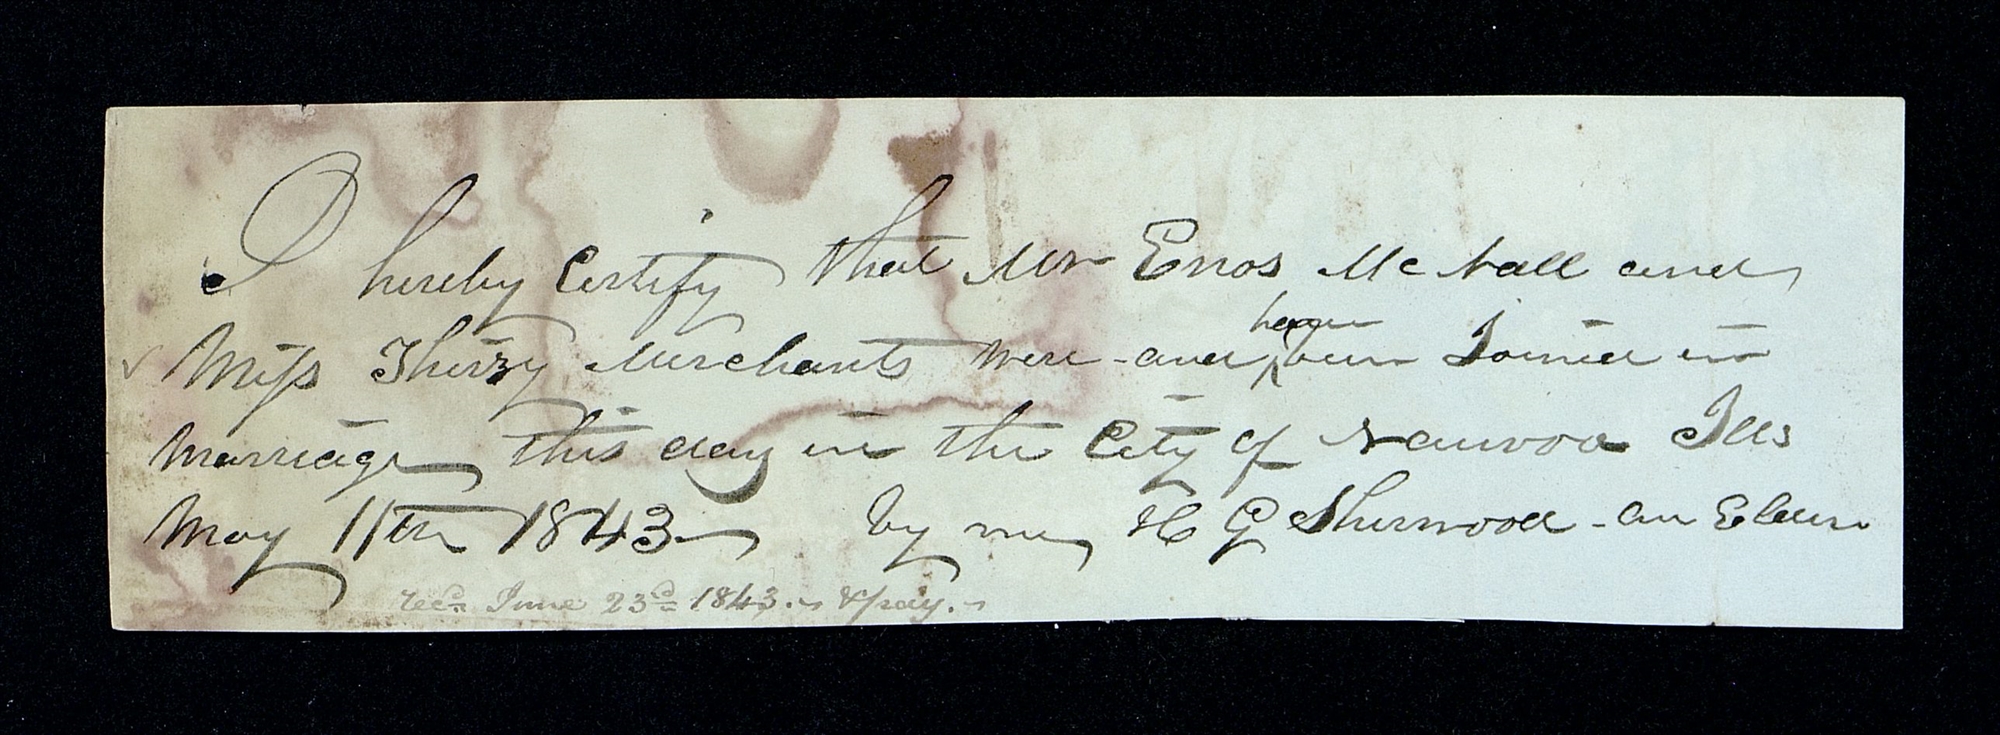 I hereby Certify that Mr Enos Mc hall and
Miss Thirzy Merchants were and have been Joined in
Marriage this day in the City of Nauvoo Ills
May 11th 1843 by me H G Sherwood - an Elder
recd. June 23d 1843. & pay.